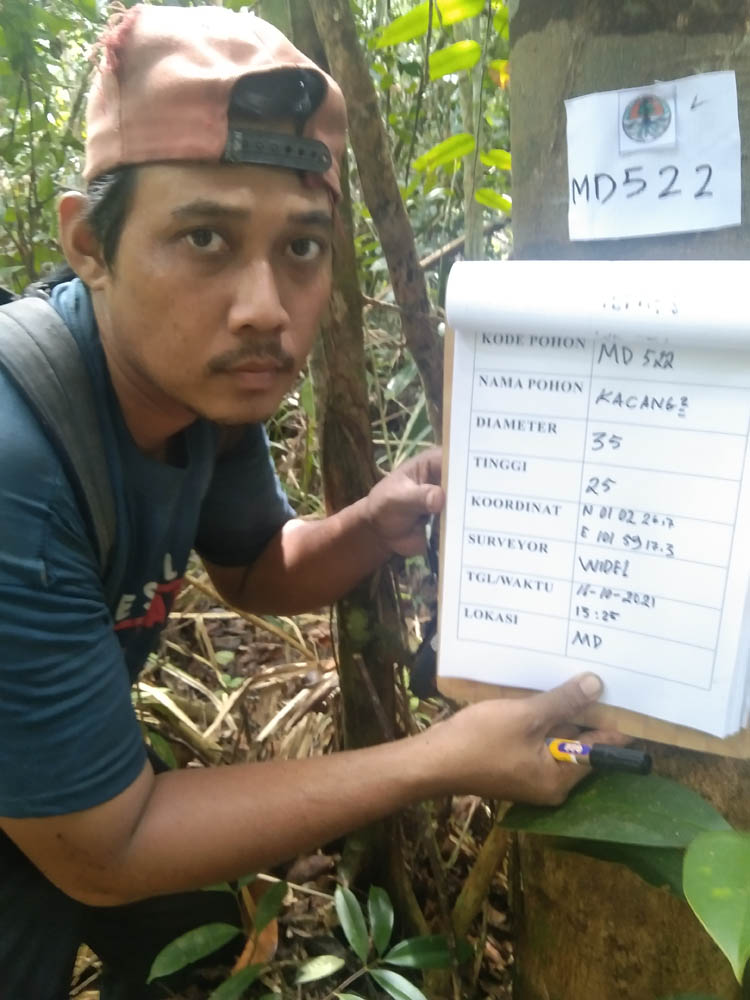 MD522
KODE POHON MD 522
NAMA POHON KACANG2
DIAMETER 35
TINGGI 25
KOORDINAT N 01 02 26.7
E 101 59 17.3
SURVEYOR WIDEL
TGL/WAKTU 16-10-2021
13:25
LOKASI MD